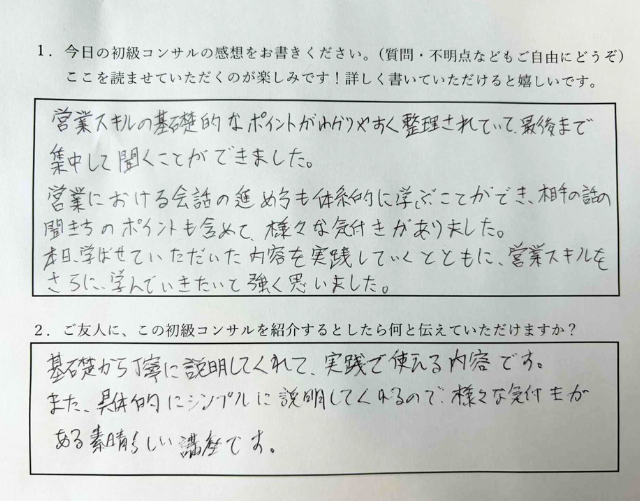 1．今日の初級コンサルの感想をお書きください。（質問・不明点などもご自由にどうぞ）
ここを読ませていただくのが楽しみです！詳しく書いていただけると嬉しいです。
営業スキルの基礎的なポイントがわかりやすく整理されていて、最後まで
集中して聞くことができました。
営業における会話の進め方も体系的に学ぶことができ、相手の話の
聞き方のポイントも含めて、様々な気付きがありました。
本日、学ばせていただいた内容を実践していくとともに、営業スキルを
さらに、学んでいきたいと強く思いました。
2．ご友人に、この初級コンサルを紹介するとしたら何と伝えていただけますか？
基礎から丁寧に説明してくれて、実践で使える内容です。
また、具体的にシンプルに説明してくれるので、様々な気付きが
ある素晴らしい講座です。